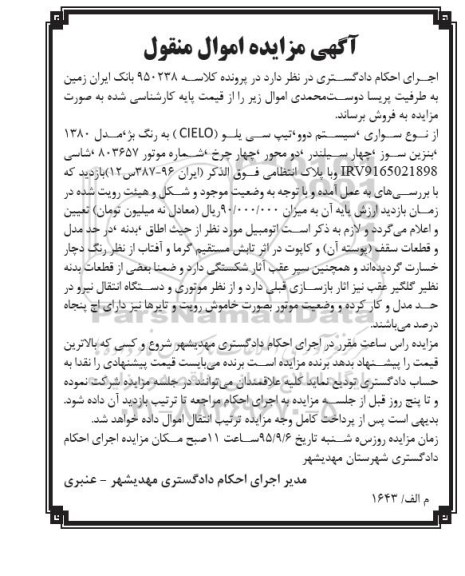 آگهی مزایده اموال منقول
اجرای احکام دادگستری در نظر دارد در پرونده کلاسه ۹۵۰۲۳۸ بانک ایران زمین
به طرفیت پریسا دوست‌محمدی اموال زیر را از قیمت پایه کارشناسی شده به صورت
مزایده به فروش برساند.
از نوع سواری ،سیستم دوو،تیپ سی یلو (CIELO) به رنگ بژ،مدل ۱۳۸۰
،بنزین سوز ،چهار سیلندر ،دو محور ،چهار چرخ ،شماره موتور ۸۰۳۶۵۷ ،شاسی
IRV9165021898 وبا پلاک انتظامی فوق الذکر (ایران ۹۶-۳۸۷س۱۲)بازدید که
با بررسی‌های به عمل آمده و با توجه به وضعیت موجود و شکل و هیئت رویت شده در
زمان بازدید ارزش پایه آن به میزان ۹۰/۰۰۰/۰۰۰ریال (معادل نه میلیون تومان) تعیین
و اعلام می‌گردد و لازم به ذکر است اتومبیل مورد نظر از حیث اطاق ،بدنه ،در حد مدل
و قطعات سقف (پوسته آن) و کاپوت در اثر تابش مستقیم گرما و آفتاب از نظر رنگ دچار
خسارت گردیده‌اند و همچنین سپر عقب آثار شکستگی دارد و ضمنا بعضی از قطعات بدنه
نظیر گلگیر عقب نیز اثار بازسازی قبلی دارد و از نظر موتوری و دستگاه انتقال نیرو در
حد مدل و کار کرده و وضعیت موتور بصورت خاموش رویت و تایرها نیز دارای اج پنجاه
درصد می‌باشند.
مزایده راس ساعت مقرر در اجرای احکام دادگستری مهدیشهر شروع و کسی که بالاترین
قیمت را پیشنهاد بدهد برنده مزایده است برنده می‌بایست قیمت پیشنهادی را نقدا به
حساب دادگستری تودیع نماید کلیه علاقمندان می‌توانند در جلسه مزایده شرکت نموده
و تا پنج روز قبل از جلسه مزایده به اجرای احکام مراجعه تا ترتیب بازدید آن داده شود.
بدیهی است پس از پرداخت کامل وجه مزایده ترتیب انتقال اموال داده خواهد شد.
زمان مزایده روزسه شنبه تاریخ ۹۵/۹/۶ساعت ۱۱صبح مکان مزایده اجرای احکام
دادگستری شهرستان مهدیشهر
مدیر اجرای احکام دادگستری مهدیشهر - عنبری
م الف/ ۱۶۴۳
ParsNamadData